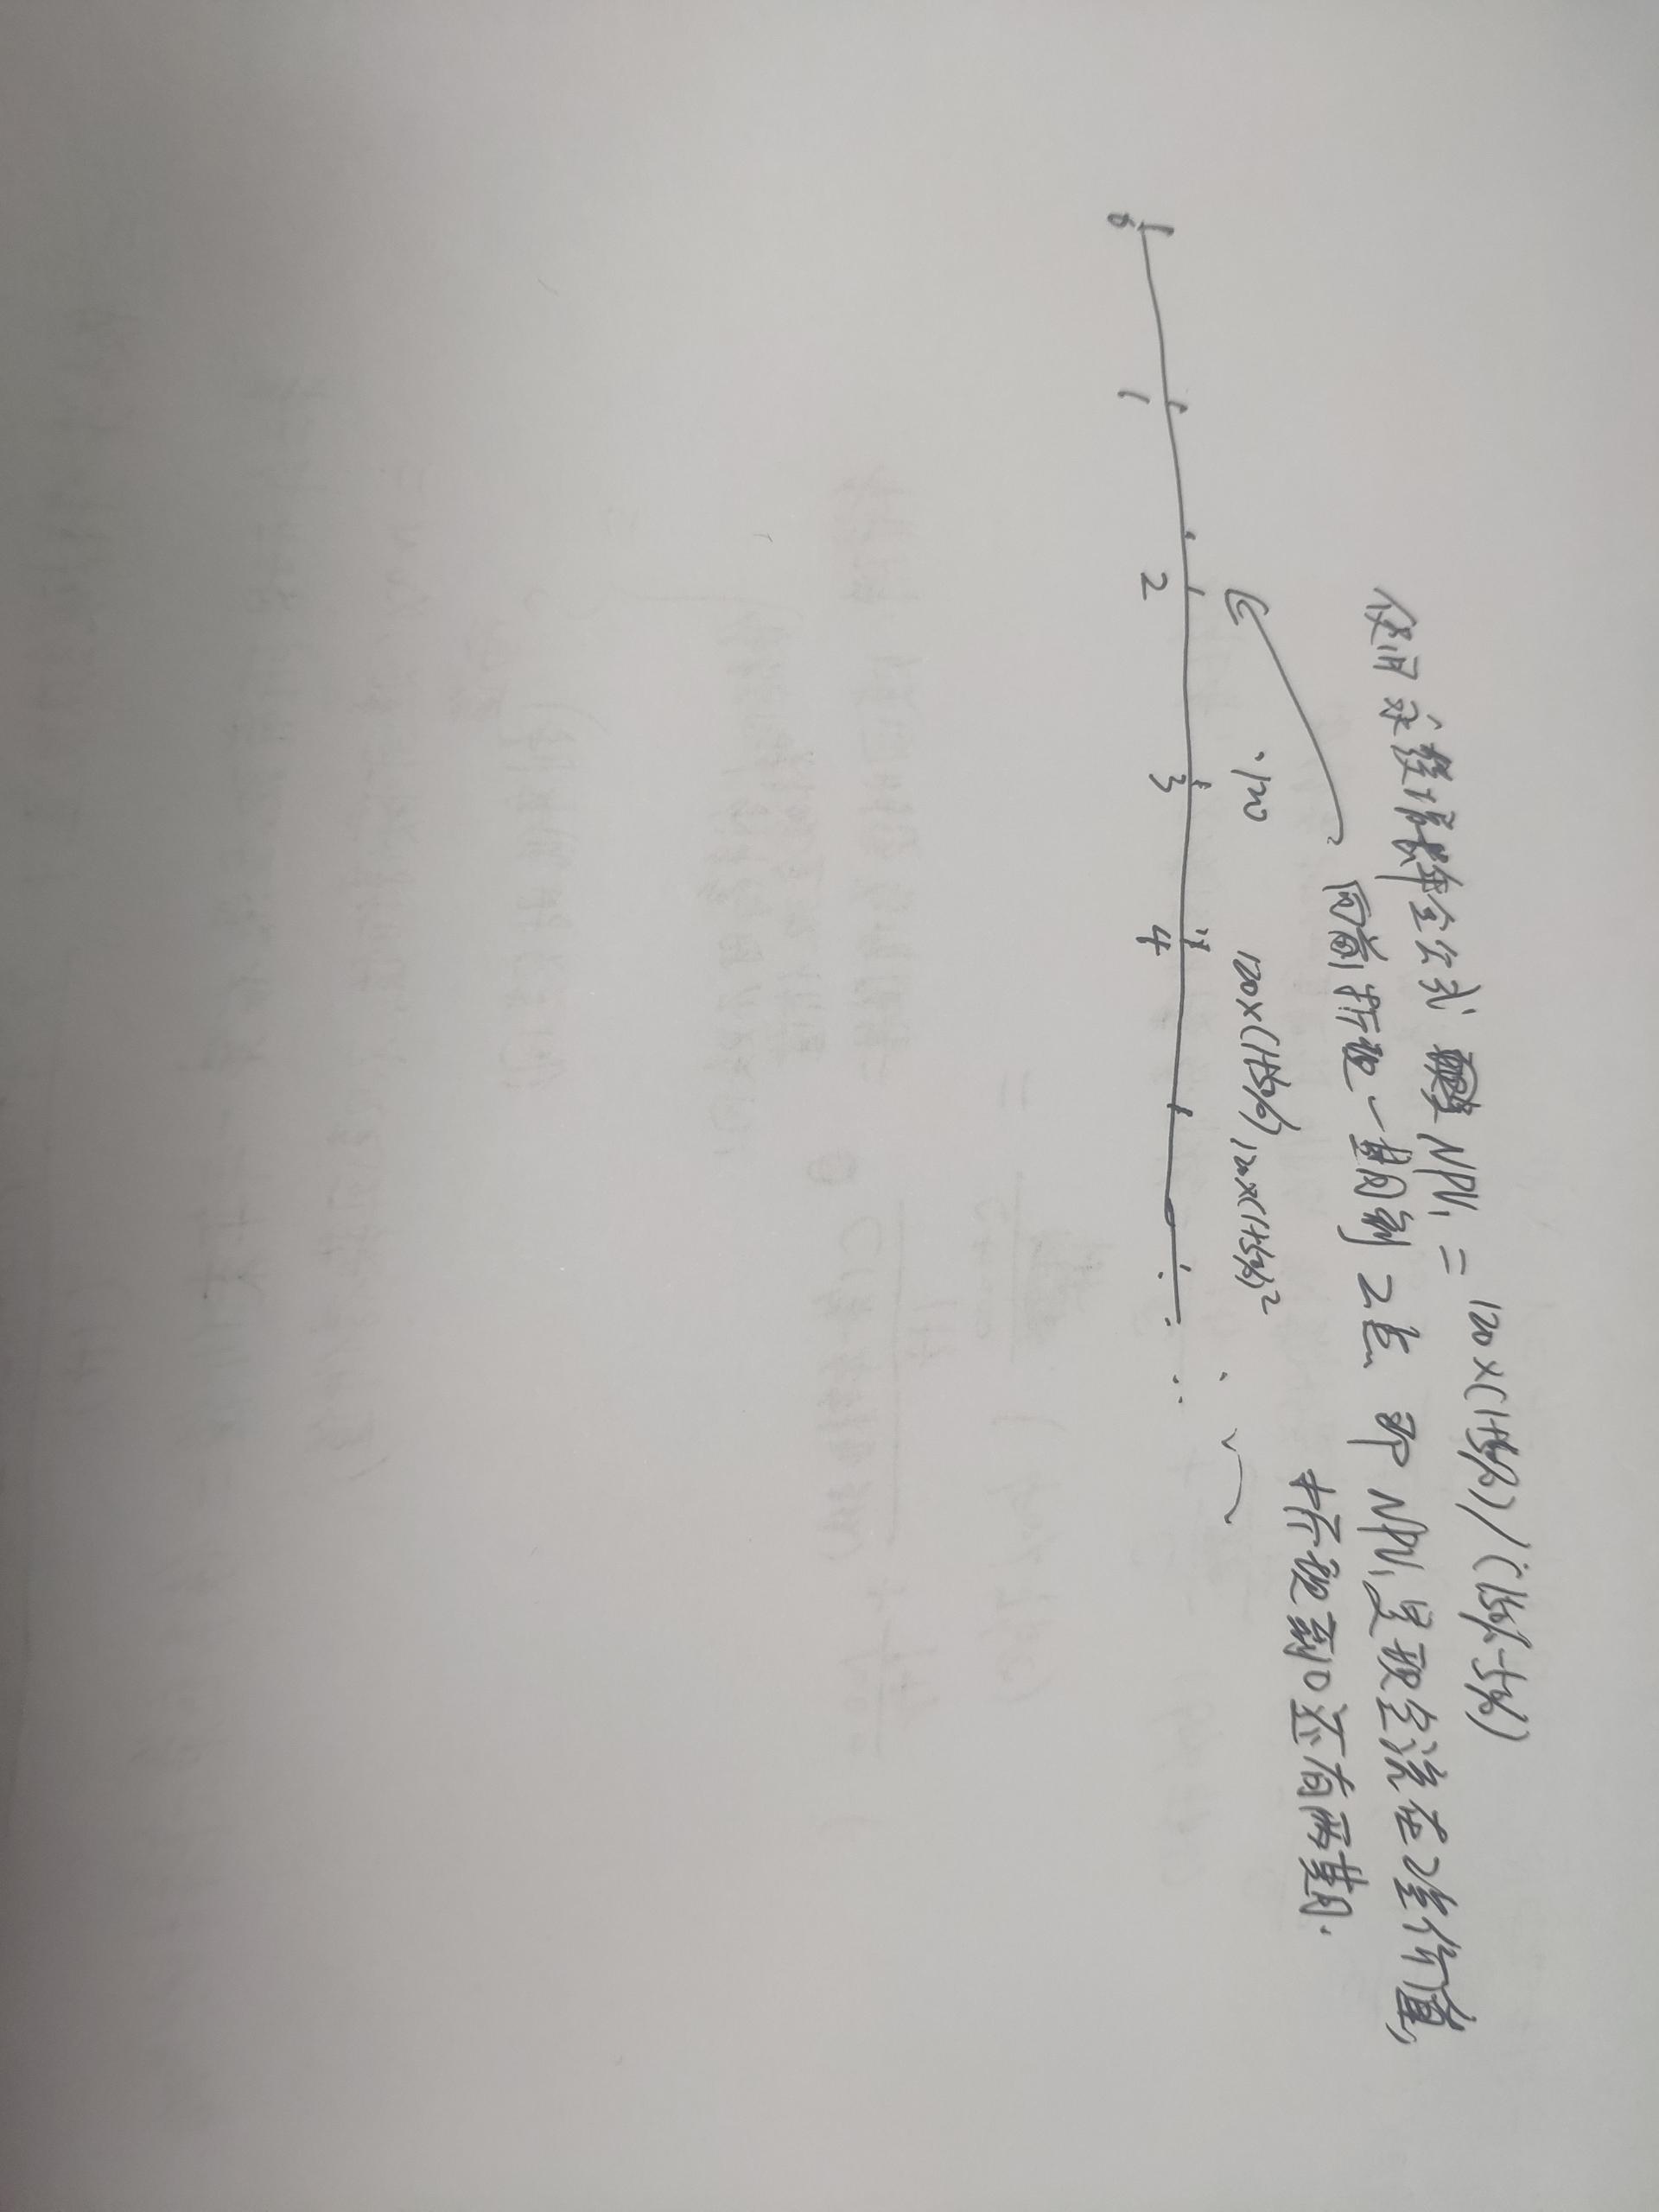 使用永续增长年金公式 NPV₁ = 120×(1+5%)/(15%-5%)
向前折现一期到2点 即NPV₁是现金流在2点价值,
折现到0还有两期.
120 120×(1+5%) 120×(1+5%)²
0 1 2 3 4